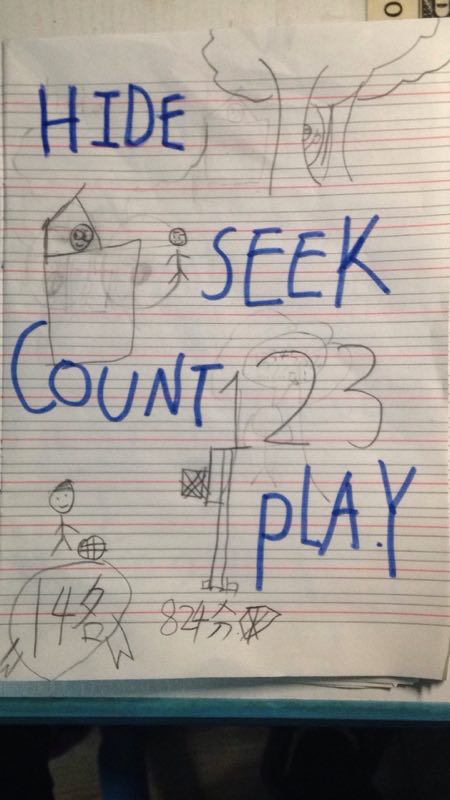 HIDE
SEEK
COUNT 123
pLAY
14名
824分